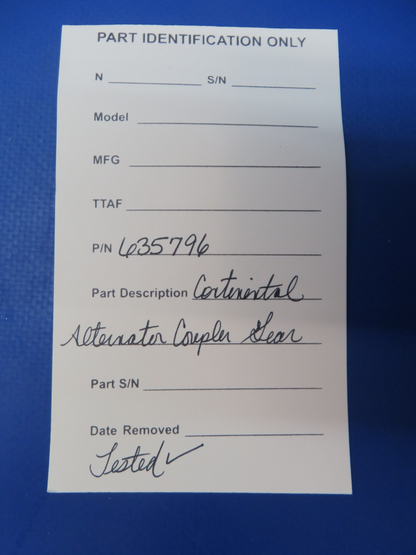 PART IDENTIFICATION ONLY
N ____________ S/N ____________
Model
MFG
TTAF
P/N 635796
Part Description Continental
Alternator Coupler Gear
Part S/N
Date Removed
Tested ✓